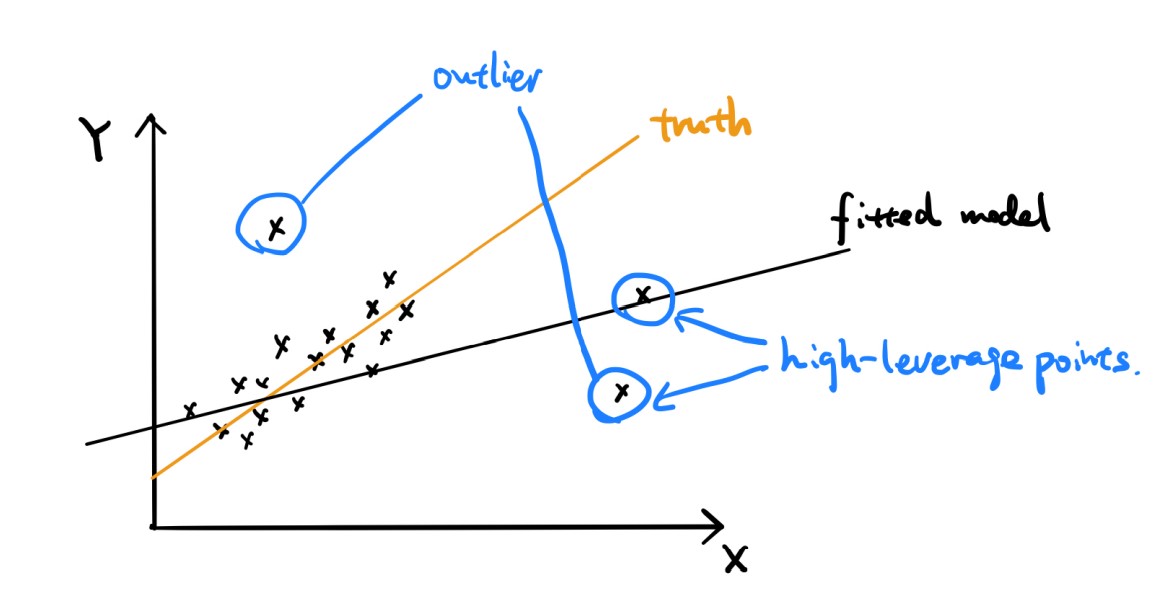 outlier
truth
Y
fitted model
high-leverage points.
X